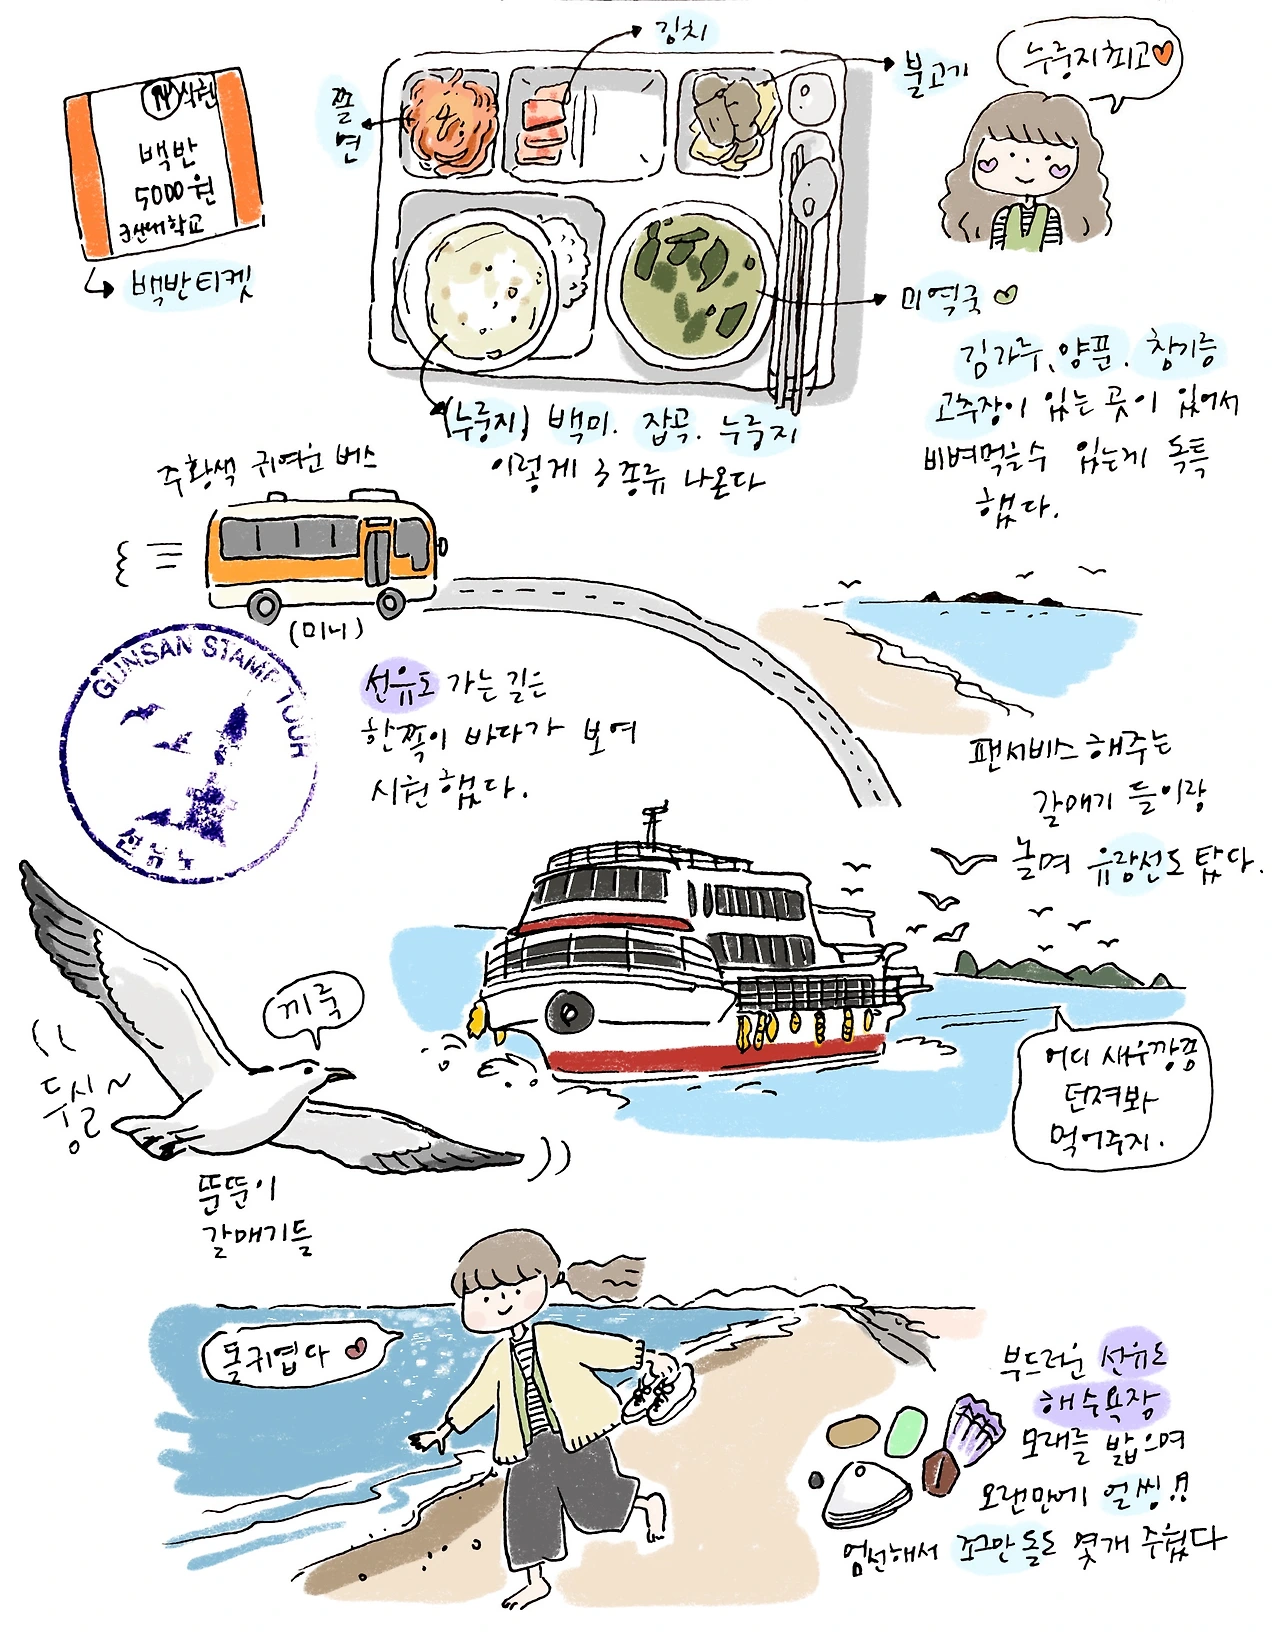 김치
불고기
쫄
면
누룽지최고
식권
백반
5000원
군산대학교
백반티켓
미역국
김가루, 양푼, 참기름
고추장이 있는 곳이 있어서
비벼먹을수 있는게 독특
했다.
(누룽지) 백미. 잡곡. 누룽지
이렇게 3종류 나온다
주황색 귀여운 버스
(미니)
GUNSAN STAMP TOUR
선유도
선유도 가는 길은
한쪽이 바다가 보여
시원했다.
팬서비스 해주는
갈매기 들이랑
놀며 유람선도 탔다.
끼룩
두실~
어디 새우깡좀
던져봐
먹어주지.
뚠뚠이
갈매기들
돌귀엽다
부드러운 선유도
해수욕장
모래를 밟으며
오랜만에 얼씽!!
엄선해서 조그만 돌도 몇개 주웠다